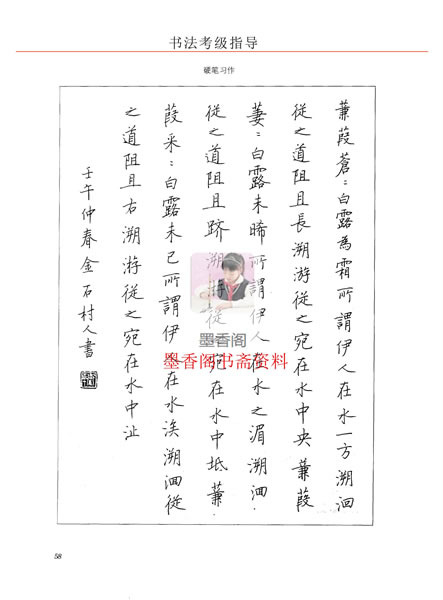 书法考级指导
硬笔习作
蒹葭蒼:白露為霜所謂伊人在水一方溯洄
從之道阻且長溯游從之宛在水中央蒹葭
萋:白露未晞所謂伊人在水之湄溯洄
從之道阻且跻溯游從之宛在水中坻蒹
葭采:白露未已所謂伊人在水涘溯洄從
之道阻且右溯游從之宛在水中沚
壬午仲春金石村人書
墨香阁
墨香阁书斋资料
58